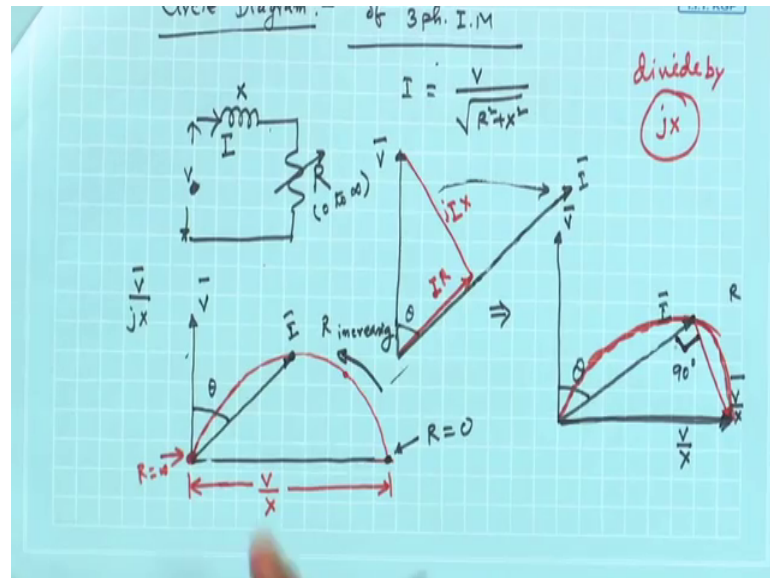 Circle Diagram :- of 3 ph. I.M
I = V / √(R²+X²)
divide by
jX
X
I
V
R
(0 to ∞)
V̄
jIX
IR
θ
Ī
⇒
V̄
Ī
R
θ
90°
V̄/X
V/X
V̄/jX
V̄
Ī
θ
R increasing
R=∞
R=0
V/X